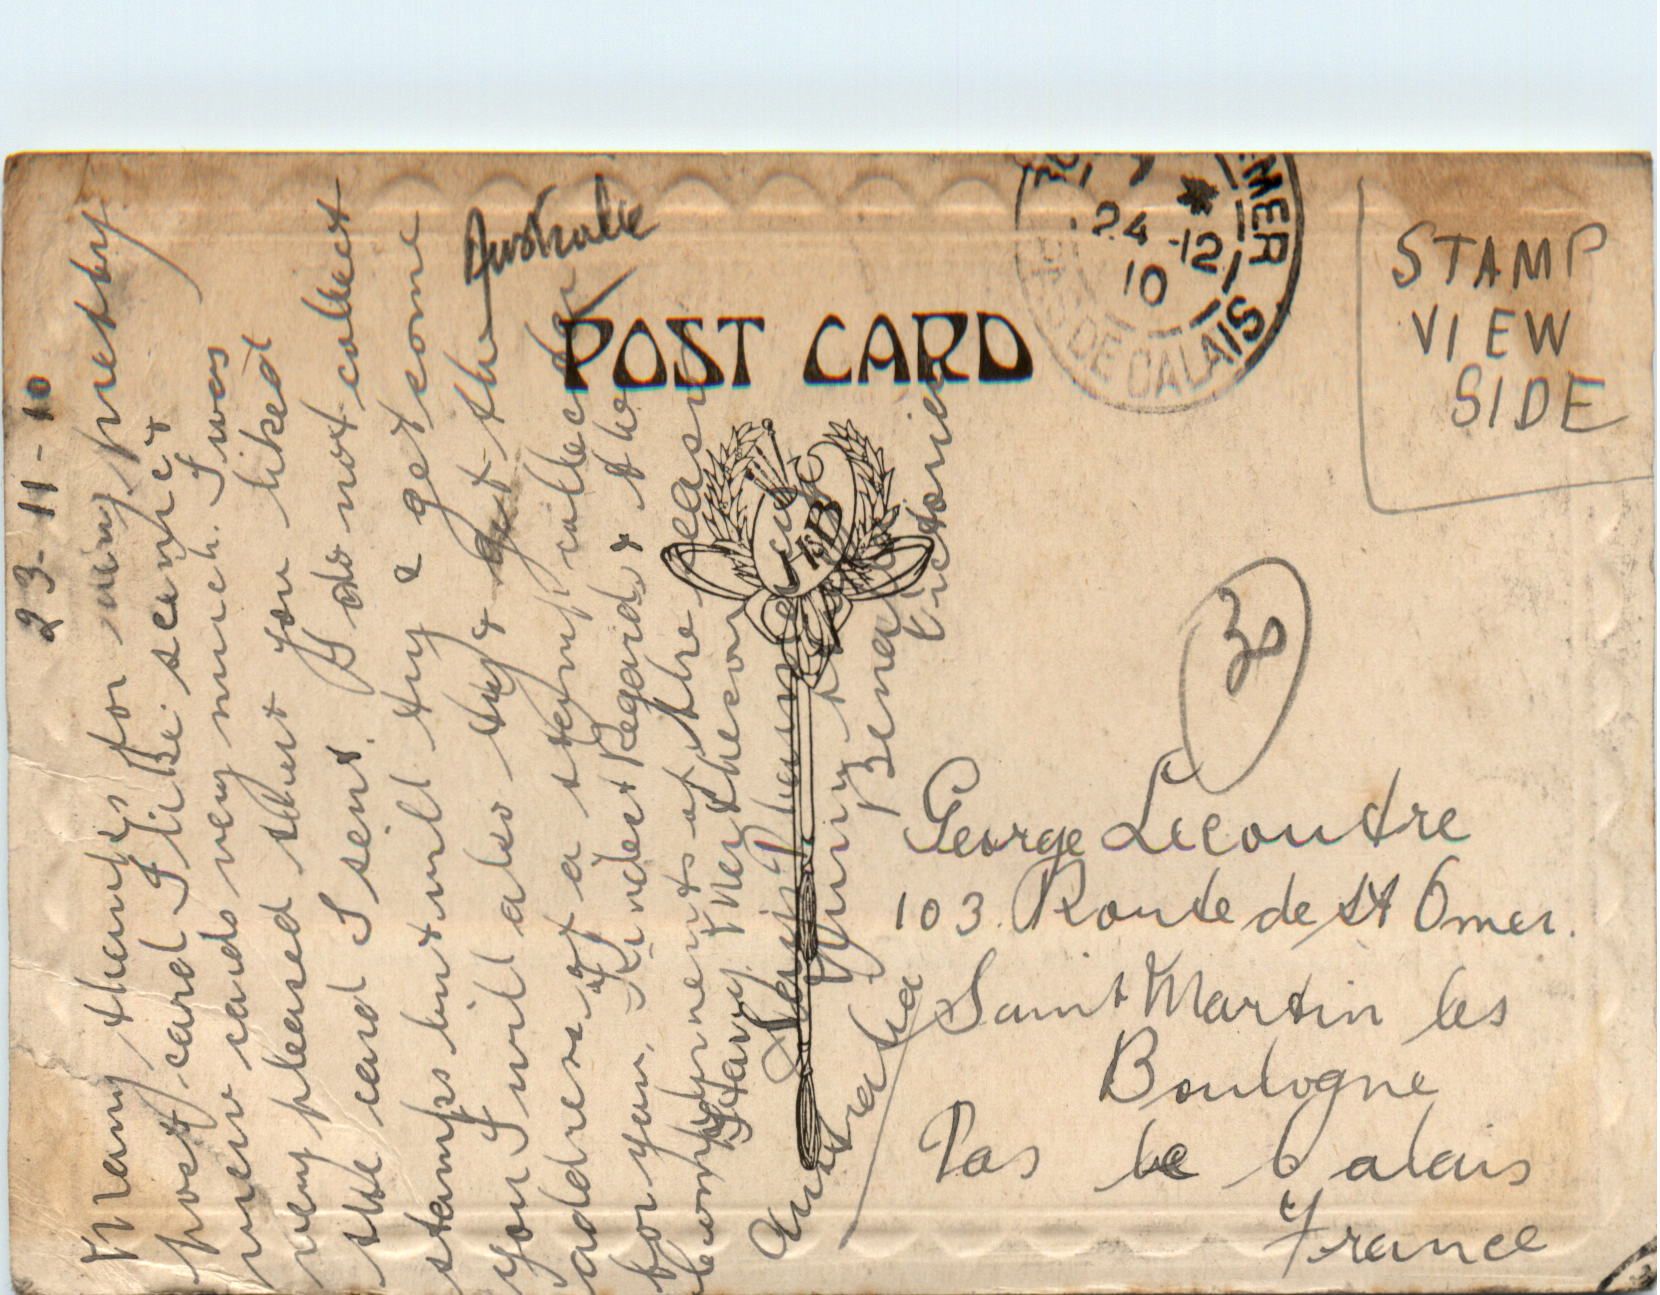 23-11-10
Many thanks for very pretty
post card I like scenic &
view cards very much. I was
very pleased that you liked
the card I sent. I do not collect
stamps but will try & get some
you I will also try & get the
address of a stamp collector
for you. Kindest Regards & the
compliments of the season
Harry Matheson
Bena
Victoria
Australia
Australie
POST CARD
KB
MER
24 -12
10
PAS DE CALAIS
STAMP
VIEW
SIDE
George Lecoutre
103. Route de St Omer.
Saint Martin les
Boulogne
Pas de Calais
France